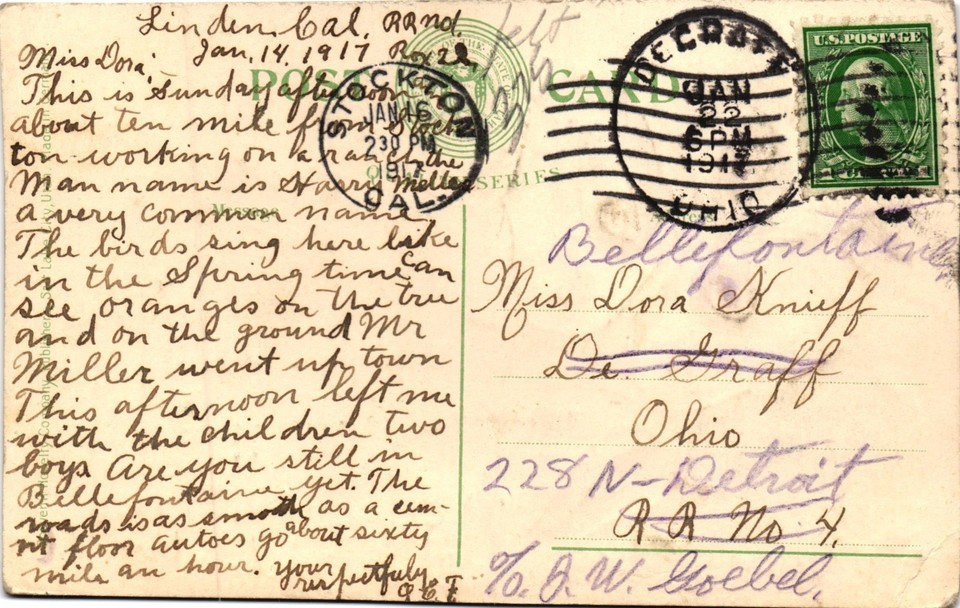 Linden, Cal. RR no.
Jan, 14, 1917 Box 22
Miss Dora;
This is Sunday afternoon
about ten mile from Stoc
ton working on a ranch the
Man name is Harry Miller
a very common name
The birds sing here like
in the Spring time can
see oranges on the tree
and on the ground Mr
Miller went up town
This afternoon left me
with the children two
boys Are you still in
Bellefontaine yet. The
roads is as smooth as a cem-
nt floor autoes go about sixty
mile an hour. your
respectfully
POST CARD
SERIES
STOCKTON
JAN 16
230 PM
1917
CAL.
DEGRAFF
JAN
22
6 PM
1917
OHIO
U.S. POSTAGE
Bellefontaine
Miss Dora Knieff
De. Graff
Ohio
228 N-Detroit
RR No 4.
c/o J. W. Goebel.